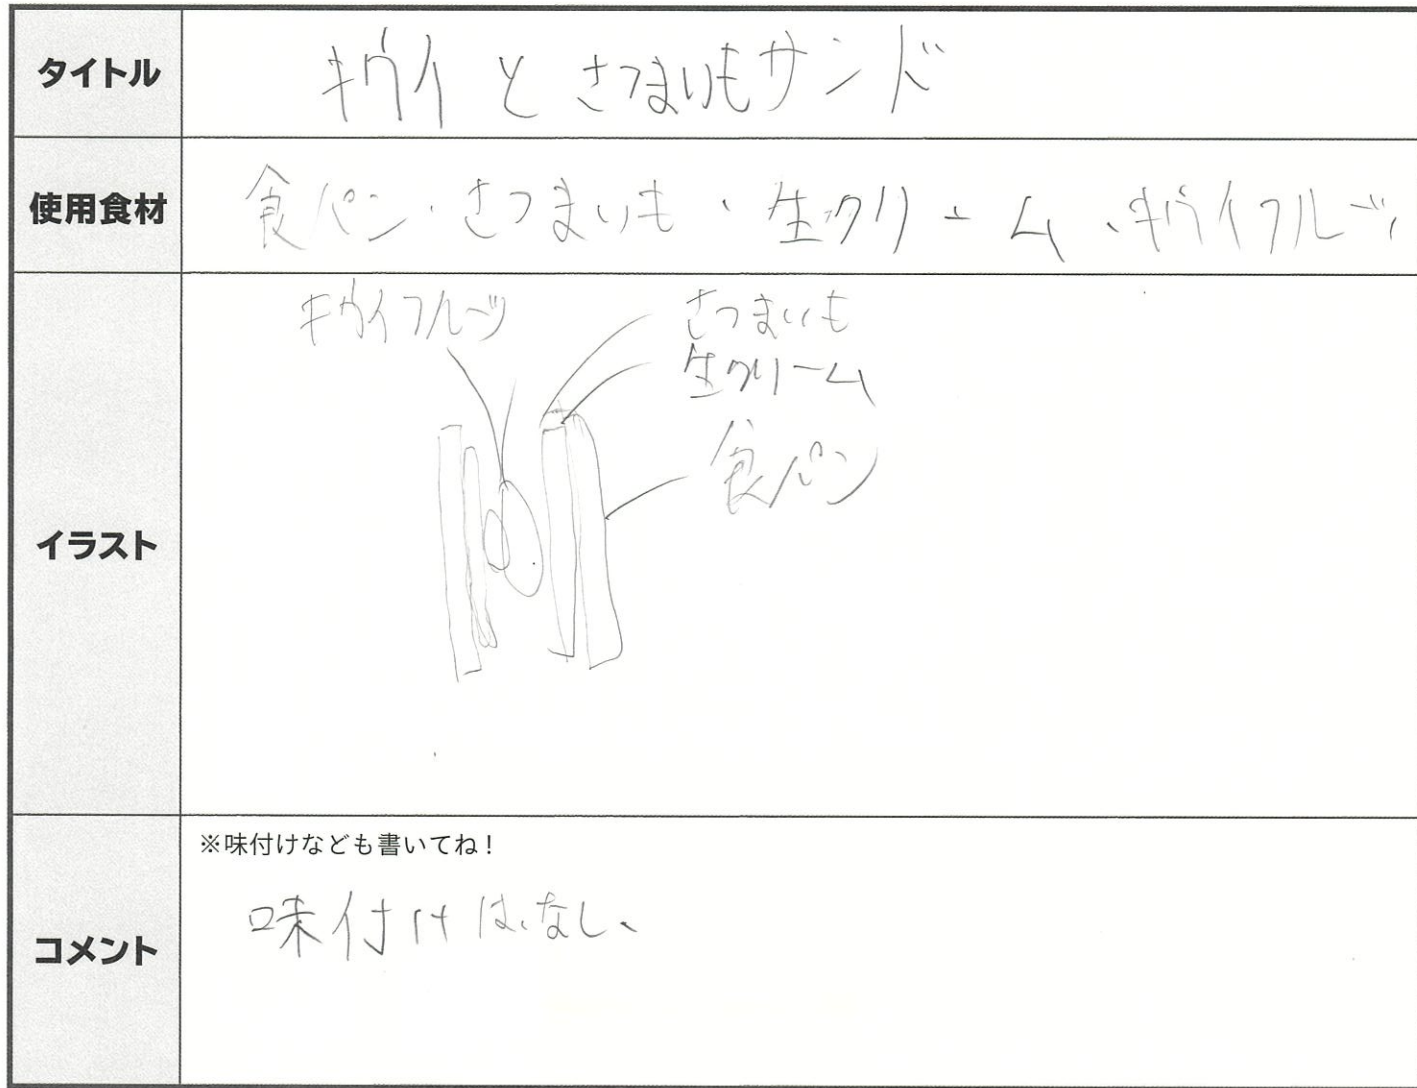 タイトル
キウイとさつまいもサンド
使用食材
食パン・さつまいも・生クリーム・キウイフルーツ
イラスト
キウイフルーツ
さつまいも
生クリーム
食パン
コメント
※味付けなども書いてね!
味付けは、なし、